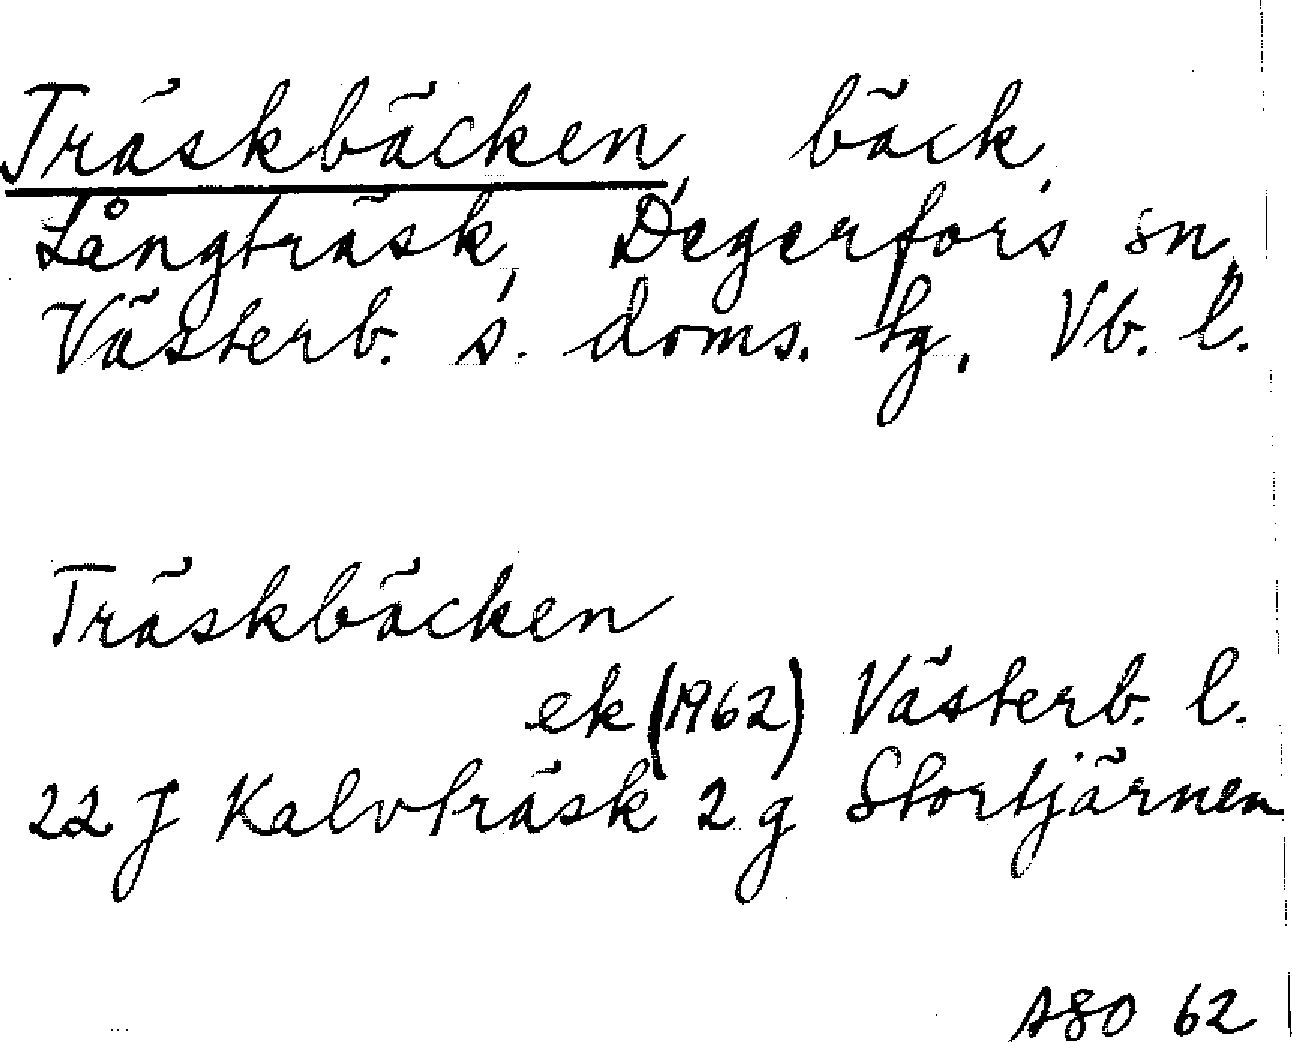 Träskbäcken, bäck,
Långträsk, Degerfors sn,
Västerb. s. doms. tg, Vb. l.
Träskbäcken
ek (1962) Västerb. l.
22 J Kalvträsk 2 g Stortjärnen
ASO 62